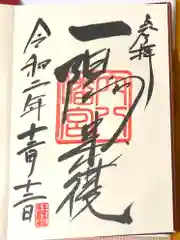 奉拝
一陽来復
令和二年十二月十二日